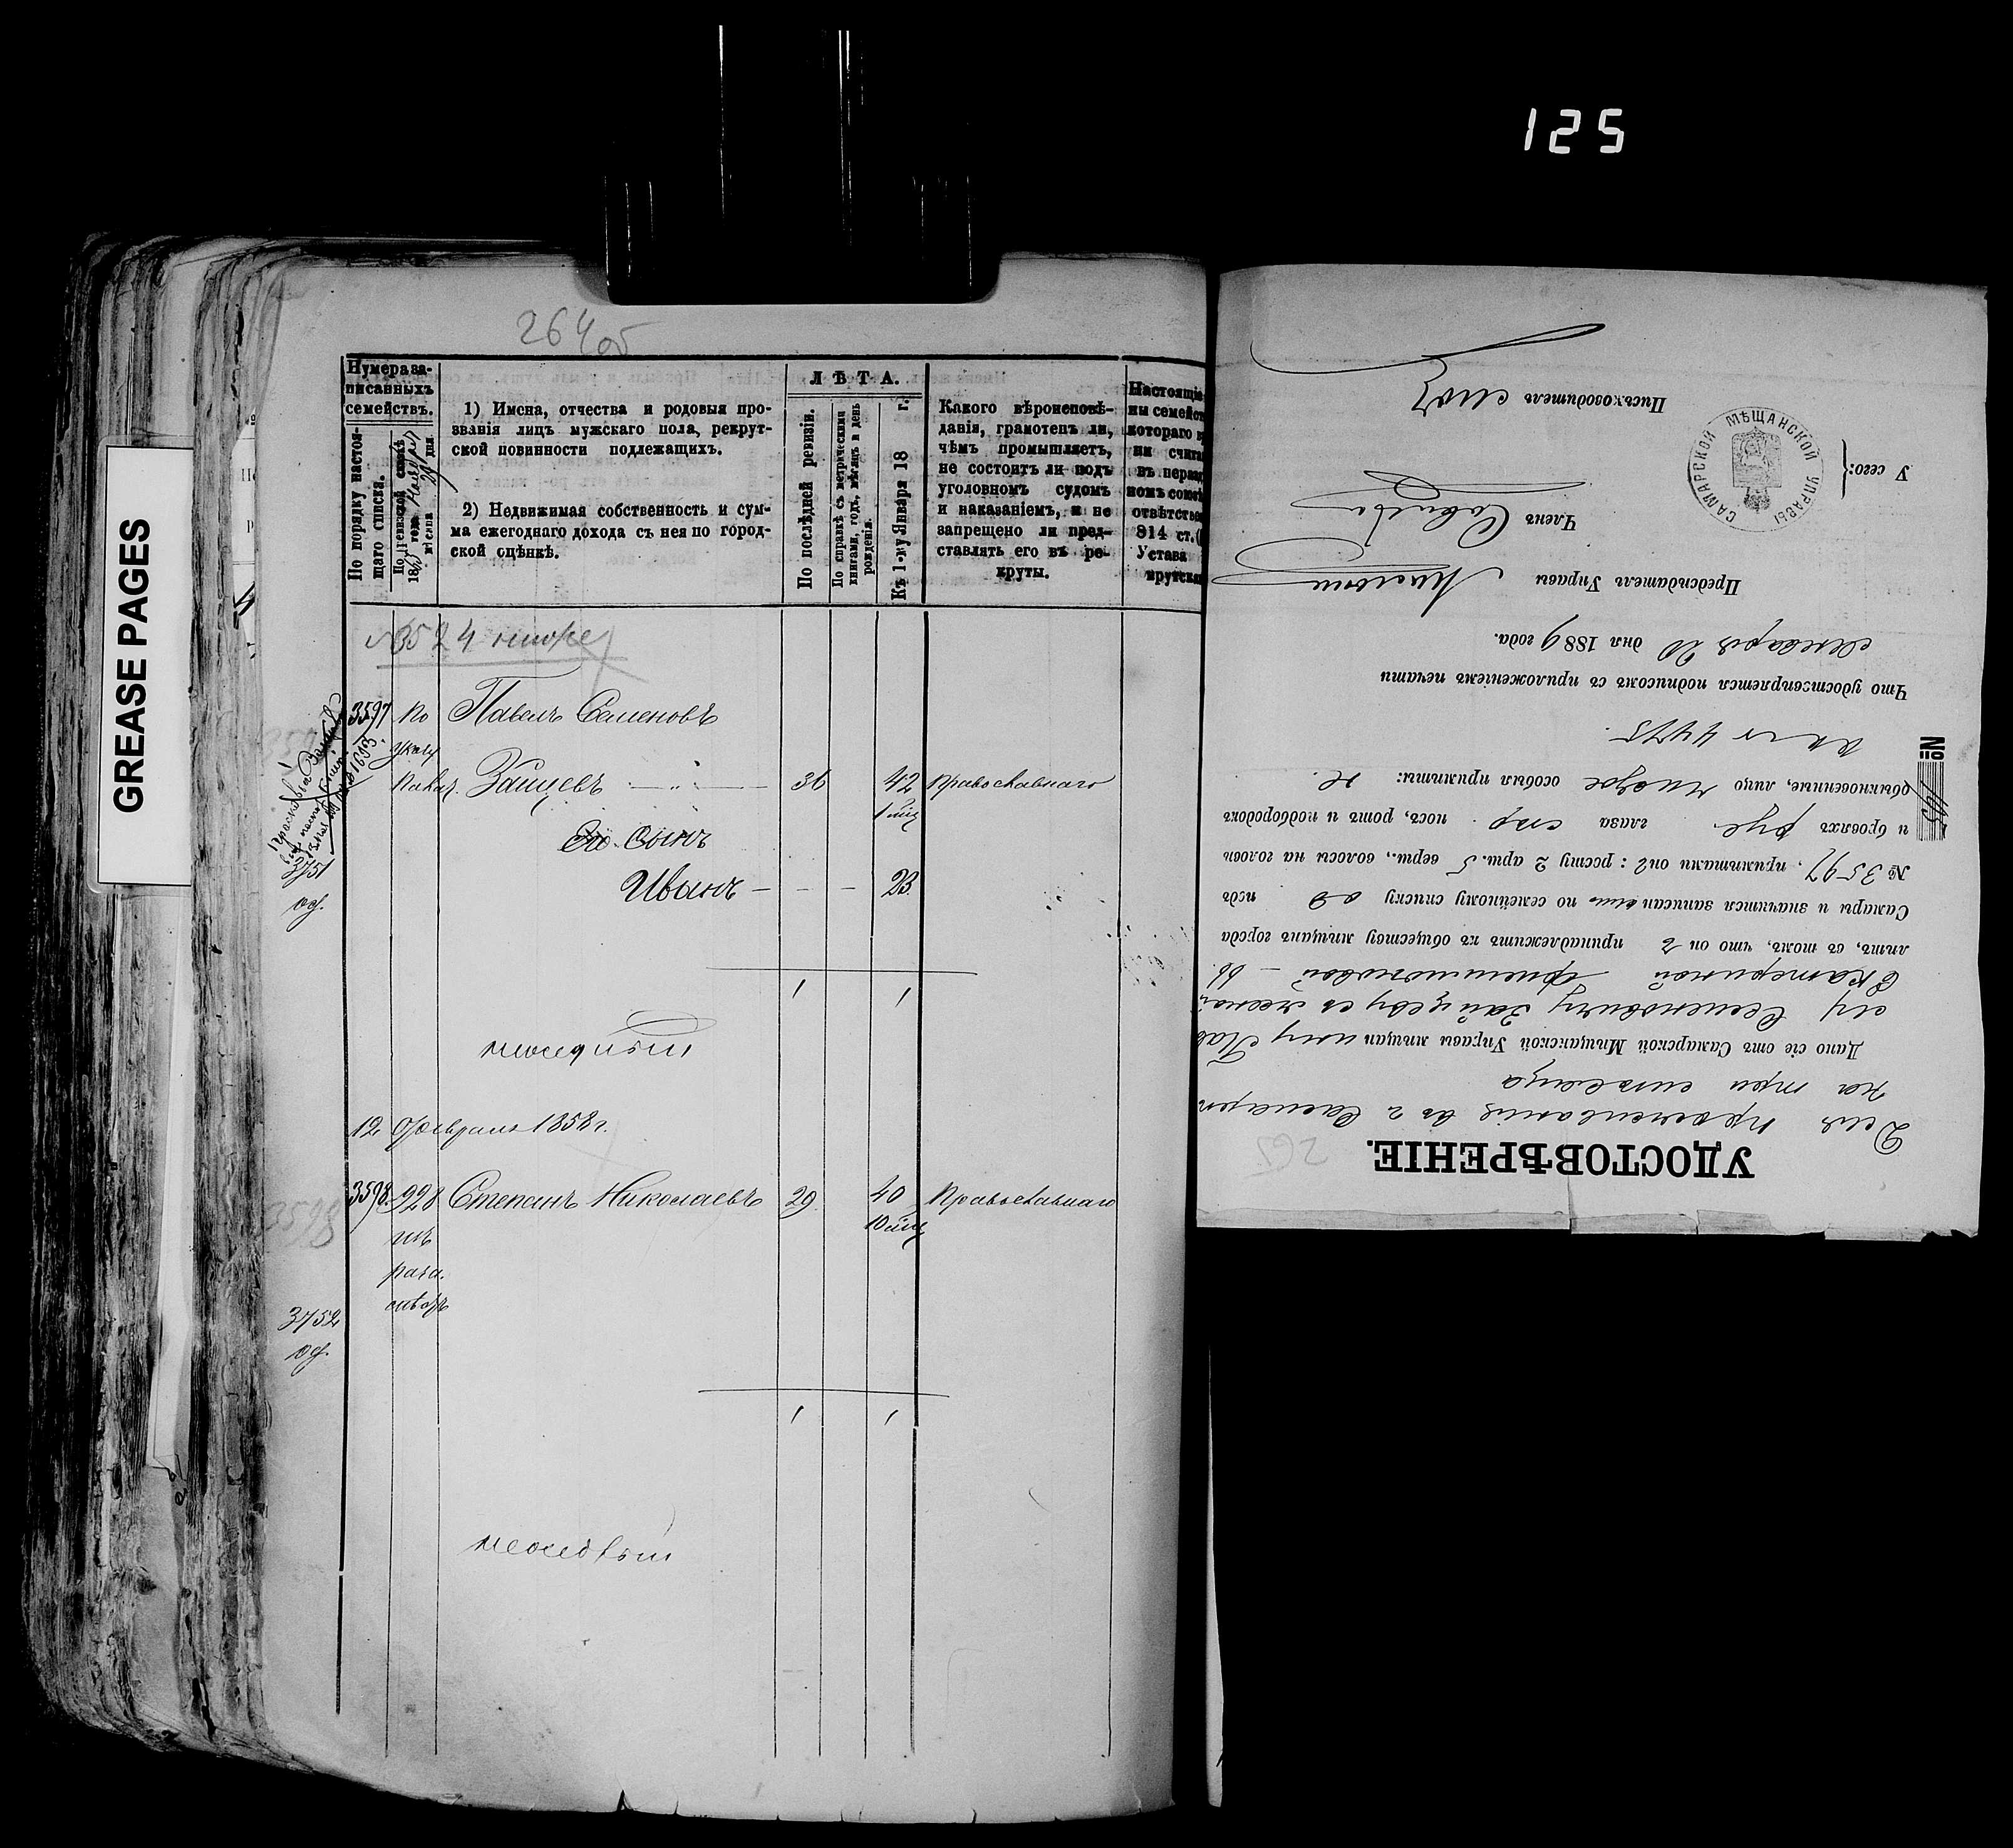 125
GREASE PAGES
264 об
Нумера за-
писанныхъ
семействъ.
По порядку настоя-
щаго списка.
По ревизской сказкѣ
18 года
мѣсяца дня
1) Имена, отчества и родовыя про-
званія лицъ мужскаго пола, рекрут-
ской повинности подлежащихъ.
2) Недвижимая собственность и сум-
ма ежегоднаго дохода съ нея по город-
ской оцѣнкѣ.
ЛѢТА.
По послѣдней ревизіи.
По справкѣ съ метрическими
книгами, годъ, мѣсяцъ и день
рожденія.
Къ 1-му Января 18 г.
Какого вѣроисповѣ-
данія, грамотенъ ли,
чѣмъ промышляетъ,
не состоитъ ли подъ
уголовномъ судомъ
и наказаніемъ, и не
запрещено ли пред-
ставлять его въ ре-
круты.
Настоящі
ны семейст
котораго в
ни счита
въ нераз
номъ союз
отвѣтстве
814 ст.(
Устава
крутска
3524
3597 По Павелъ Семеновъ
указу
Зайцевъ 36 42 православнаго
Его сынъ
3751
Иванъ - - - 23
1 1
12 Февраля 1858 г.
3598 928 Степанъ Николаевъ 29 40 Православнаго
3598
3752
1 1
УДОСТОВѢРЕНІЕ.
265
Для проживанія въ г Самарѣ
на три мѣсяца
Дано сіе отъ Самарской Мѣщанской Управы мѣщанину Пав
лу Семеновичу Зайцеву съ женой
Екатериной
лѣтъ, въ томъ, что онъ принадлежитъ къ обществу мѣщанъ города
Самары и значится записан по семейному списку подъ
№ 3597, примѣтами он: росту 2 арш. 5 верш., волосы на головѣ
и бровяхъ рус глаза сѣр носъ, ротъ и подбородокъ
обыкновенные, лицо чистое особыя примѣты:
№
Что удостовѣряется подписомъ съ приложеніемъ печати
Января 20 дня 1889 года.
Предсѣдатель Управы
Членъ
У сего:
САМАРСКОЙ МѢЩАНСКОЙ УПРАВЫ
Письмоводитель